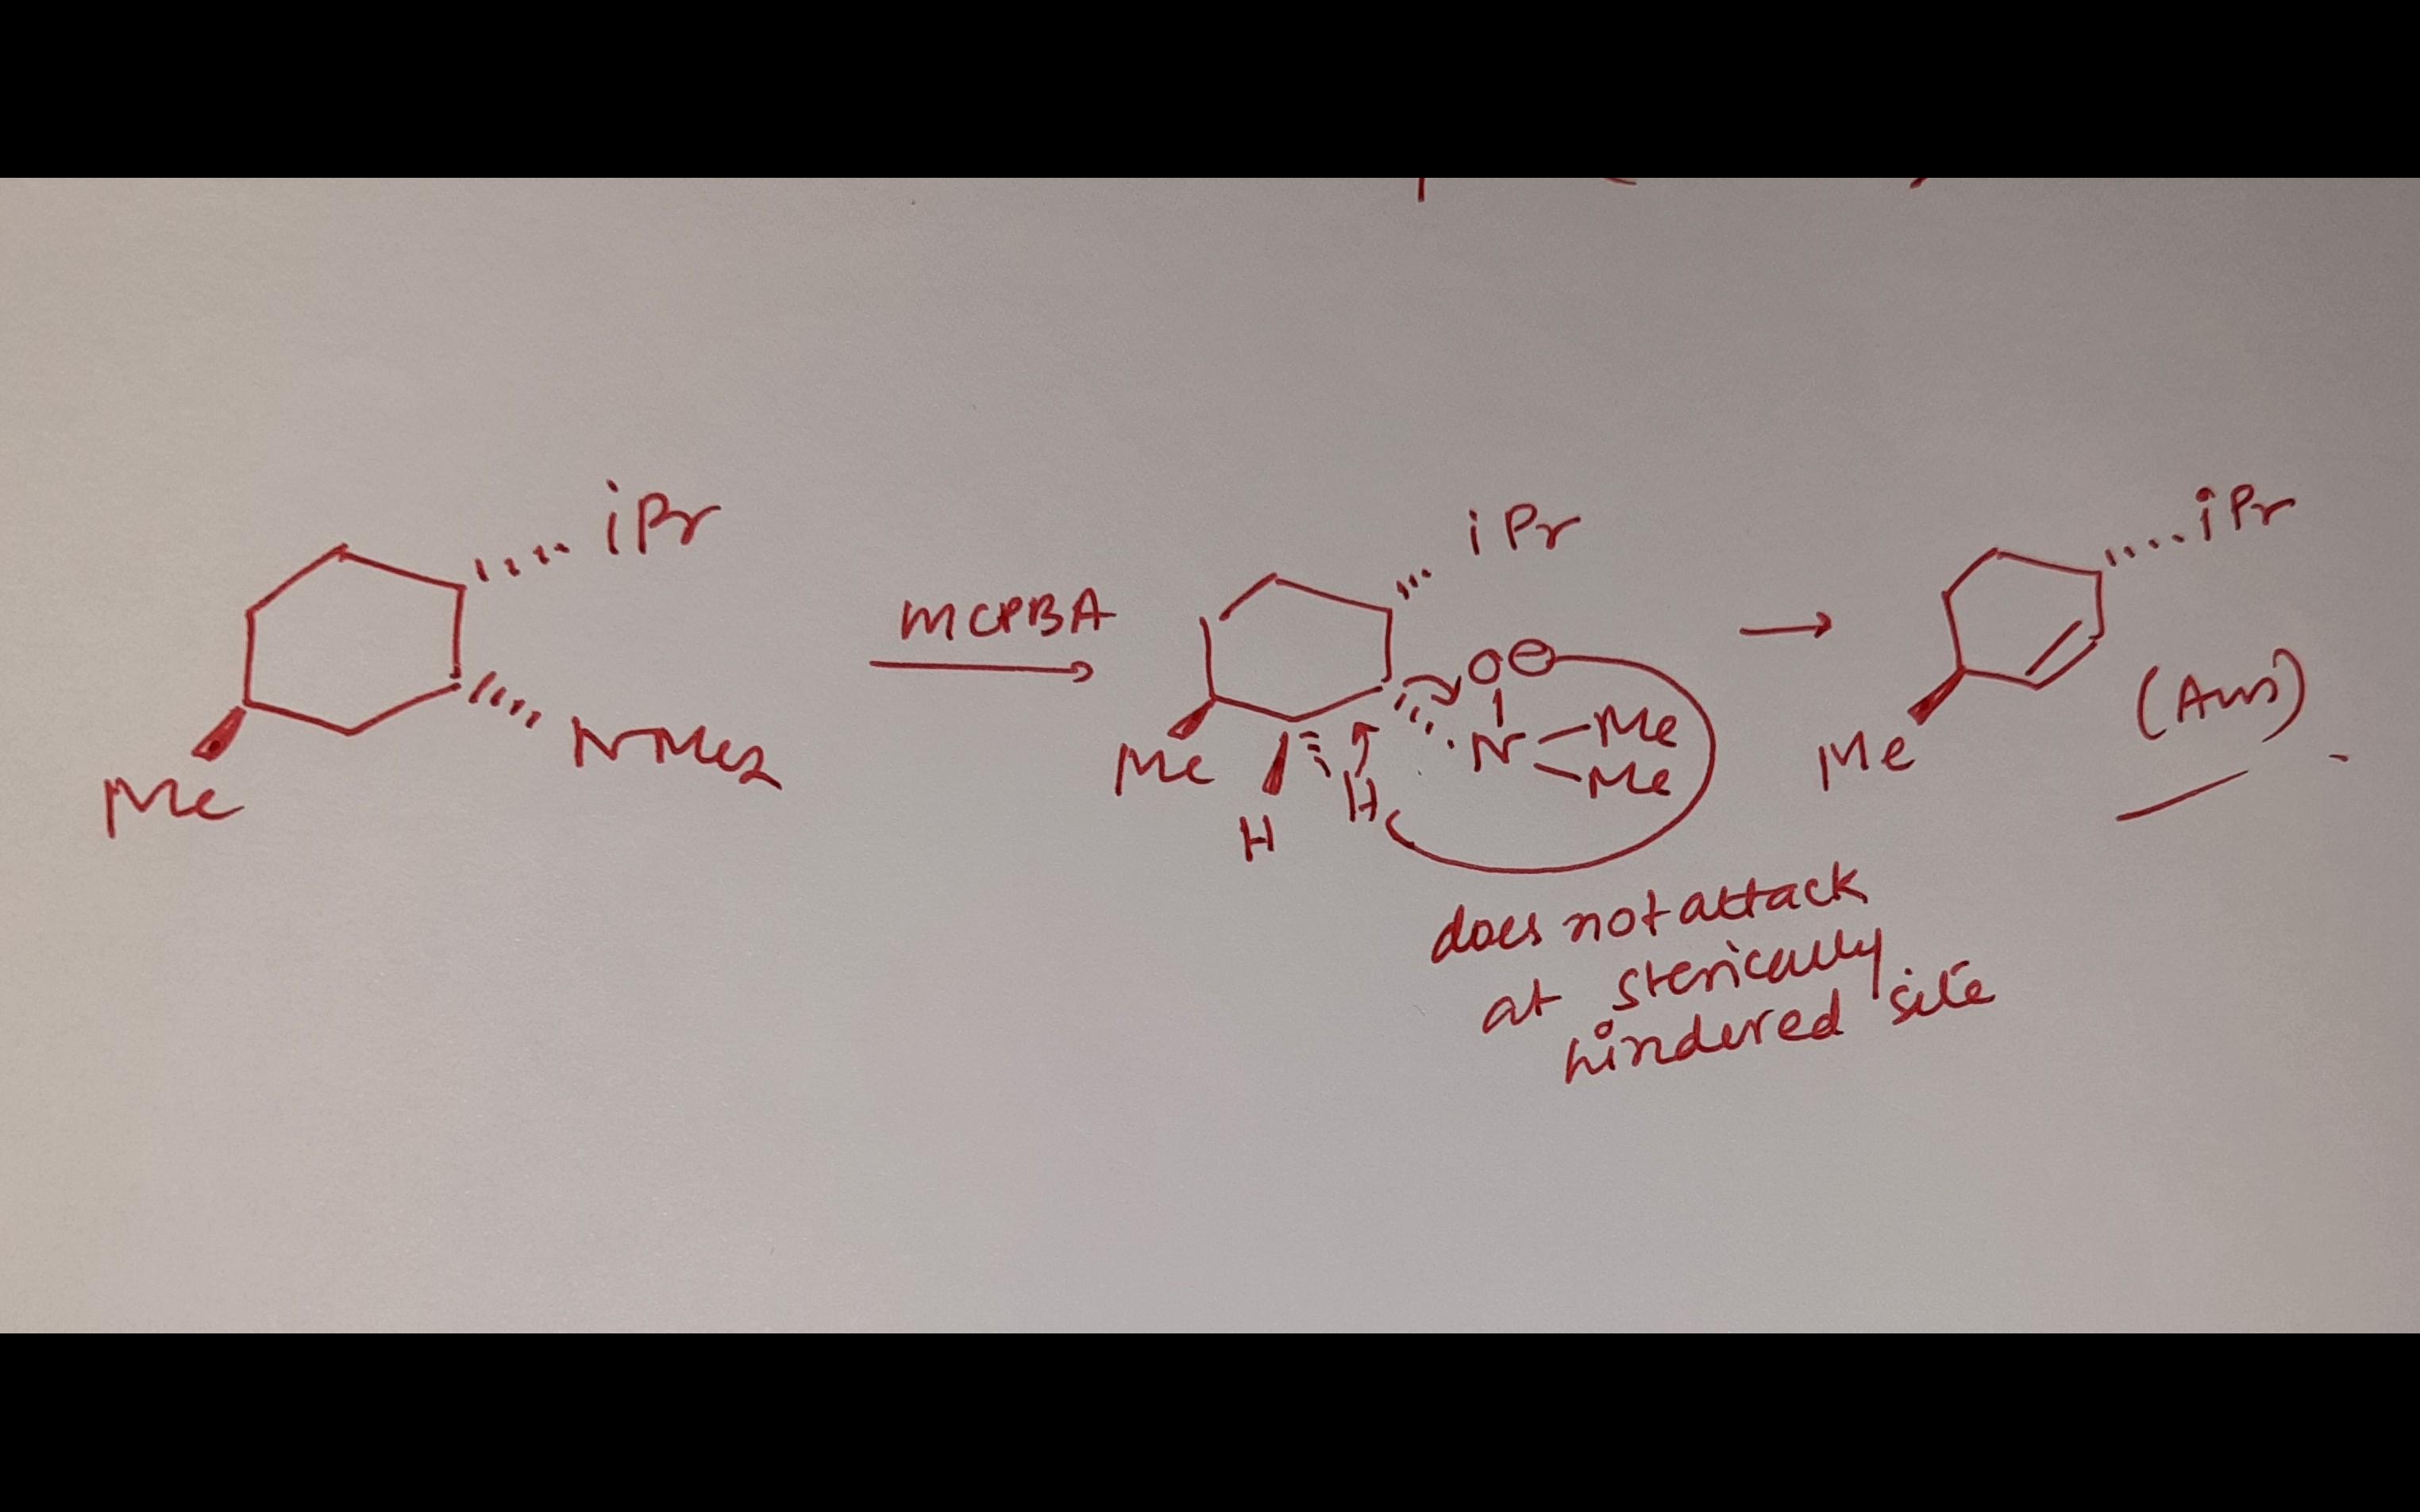 iPr
NMe2
Me
MCPBA
iPr
O⊖
N
Me
Me
Me
H
H
does not attack
at sterically
hindered site
iPr
Me
(Ans)